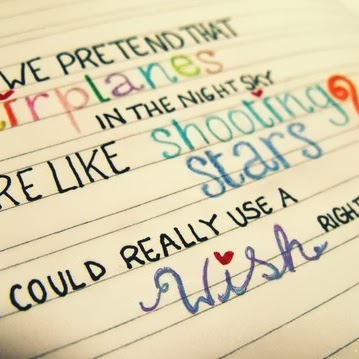 WE PRETEND THAT
airplanes
IN THE NIGHT SKY
RE LIKE shooting
stars?
COULD REALLY USE A
Wish RIGHT